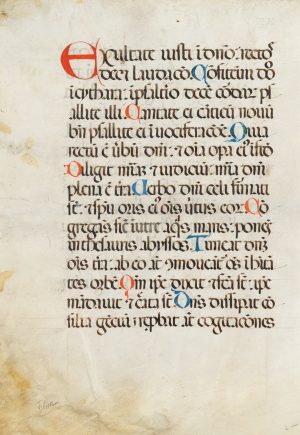 Exultate iusti i dño: rectos
decet laudacō. Cōfitemī dō
i cythara: i psaltio decē cōdaꝝ ps
allite illi. Cantate ei cāticū nouū
bñ psallite ei i uociferacōe. Quia
rectū ē ūbū dnī: et oīa opa eī i fide
Diligit mīam et iudiciū: mīa dnī
plena ē trā. Verbo dnī celi firmati
st̄: et spū oris eī oīs ūtus eoꝝ. Co
gregās sic̄ i utre aq̄s maris: ponēs
in thesauris abyssos. Timeat dnm̄
oīs trā: ab eo aūt cōmoueāt oēs ihītā
tes orbē. Qm̄ ipe dixit et fcā st̄: ipe
mādauit et c̄ata st̄. Dns̄ dissipat cō
silia gēciū: rep̄bat aūt cogitacōnes